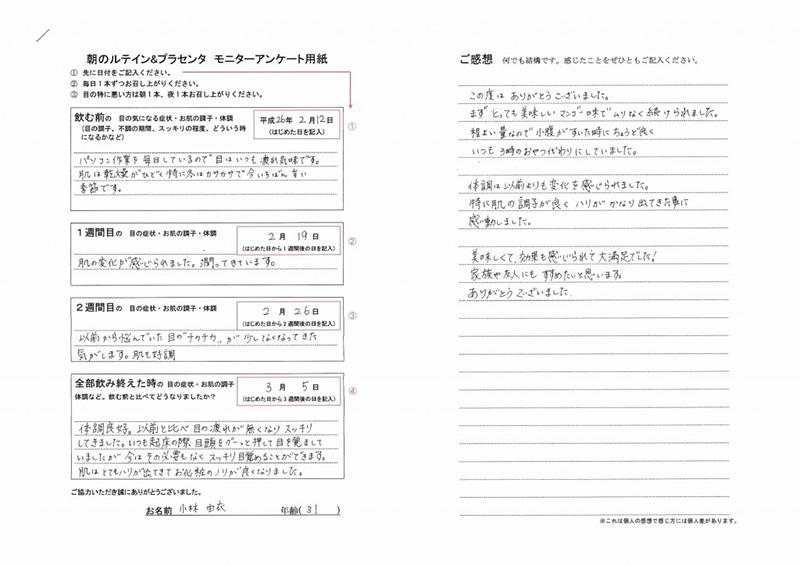 朝のルテイン&プラセンタ モニターアンケート用紙
① 先に日付をご記入ください。
② 毎日1本ずつお召し上がりください。
③ 目の特に悪い方は朝1本、夜1本お召し上がりください。
飲む前の 目の気になる症状・お肌の調子・体調
(目の調子、不調の期間、スッキリの程度、どういう時になるかなど)
平成26年 2月12日
(はじめた日を記入)
①
パソコン作業を毎日しているので目はいつも疲れ気味です。
肌は乾燥がひどく特に冬はカサカサで今いちばん辛い
季節です。
1週間目の 目の症状・お肌の調子・体調
2月 19日
(はじめた日から1週間後の日を記入)
②
肌の変化が感じられました。潤ってきています。
2週間目の 目の症状・お肌の調子・体調
2月 26日
(はじめた日から2週間後の日を記入)
③
以前から悩んでいた目の"チカチカ"が少しなくなってきた
気がします。肌も好調
全部飲み終えた時の 目の症状・お肌の調子
体調など。飲む前と比べてどうなりましたか?
3月 5日
(はじめた日から3週間後の日を記入)
④
体調良好。以前と比べ目の疲れが無くなりスッキリ
してきました。いつも起床の際目頭をグーっと押して目を覚まして
いましたが今はその必要もなくスッキリ目覚めることができます。
肌はとてもハリが出てきてお化粧のノリが良くなりました。
ご協力いただき誠にありがとうございました。
お名前 小林 由衣 年齢(31)
ご感想 何でも結構です。感じたことをぜひともご記入ください。
この度はありがとうございました。
まずとっても美味しいマンゴー味でムリなく続けられました。
程よい量なので小腹がすいた時にちょうど良く
いつも3時のおやつ代わりにしていました。
体調は以前よりも変化を感じられました。
特に肌の調子が良くハリがかなり出てきた事に
感動しました。
美味しくて、効果も感じられて大満足でした!
家族や友人にもすすめたいと思います。
ありがとうございました。
※これは個人の感想で感じ方には個人差があります。